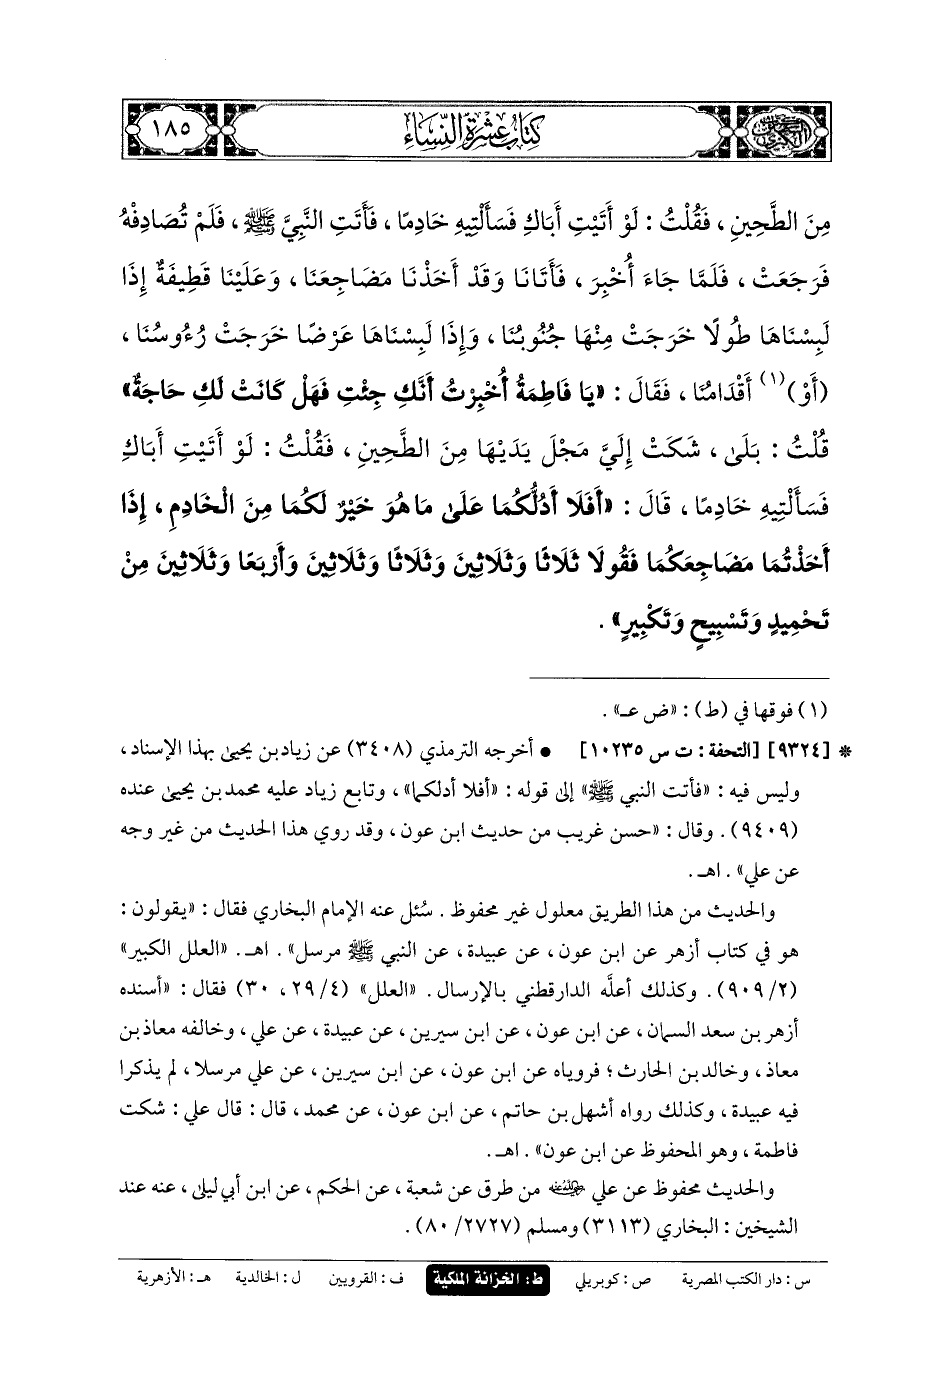 السنن الكبرى
كتاب عشرة النساء
١٨٥
مِنَ الطَّحِينِ ، فَقُلْتُ : لَوْ أَتَيْتِ أَبَاكِ فَسَأَلْتِيهِ خَادِمًا ، فَأَتَتِ النَّبِيَّ ﷺ ، فَلَمْ تُصَادِفْهُ
فَرَجَعَتْ ، فَلَمَّا جَاءَ أُخْبِرَ ، فَأَتَانَا وَقَدْ أَخَذْنَا مَضَاجِعَنَا ، وَعَلَيْنَا قَطِيفَةٌ إِذَا
لَبِسْنَاهَا طُولًا خَرَجَتْ مِنْهَا جُنُوبُنَا ، وَإِذَا لَبِسْنَاهَا عَرْضًا خَرَجَتْ رُءُوسُنَا ،
(أَوْ)(١) أَقْدَامُنَا ، فَقَالَ : «يَا فَاطِمَةُ أُخْبِرْتُ أَنَّكِ جِئْتِ فَهَلْ كَانَتْ لَكِ حَاجَةٌ»
قُلْتُ : بَلَى ، شَكَتْ إِلَيَّ مَجْلَ يَدَيْهَا مِنَ الطَّحِينِ ، فَقُلْتُ : لَوْ أَتَيْتِ أَبَاكِ
فَسَأَلْتِيهِ خَادِمًا ، قَالَ : «أَفَلَا أَدُلُّكُمَا عَلَى مَا هُوَ خَيْرٌ لَكُمَا مِنَ الْخَادِمِ ، إِذَا
أَخَذْتُمَا مَضَاجِعَكُمَا فَقُولَا ثَلَاثًا وَثَلَاثِينَ وَثَلَاثًا وَثَلَاثِينَ وَأَرْبَعًا وَثَلَاثِينَ مِنْ
تَحْمِيدٍ وَتَسْبِيحٍ وَتَكْبِيرٍ» .
(١) فوقها في (ط) : «ض عـ» .
* [٩٣٢٤] [التحفة : ت س ١٠٢٣٥] • أخرجه الترمذي (٣٤٠٨) عن زياد بن يحيى بهذا الإسناد ،
وليس فيه : «فأتت النبي ﷺ» إلى قوله : «أفلا أدلكما» ، وتابع زياد عليه محمد بن يحيى عنده
(٩٤٠٩) . وقال : «حسن غريب من حديث ابن عون ، وقد روي هذا الحديث من غير وجه
عن علي» . اهـ .
والحديث من هذا الطريق معلول غير محفوظ . سُئل عنه الإمام البخاري فقال : «يقولون :
هو في كتاب أزهر عن ابن عون ، عن عبيدة ، عن النبي ﷺ مرسل» . اهـ . «العلل الكبير»
(٩٠٩/٢) . وكذلك أعلَّه الدارقطني بالإرسال . «العلل» (٢٩/٤ ، ٣٠) فقال : «أسنده
أزهر بن سعد السمان ، عن ابن عون ، عن ابن سيرين ، عن عبيدة ، عن علي ، وخالفه معاذ بن
معاذ ، وخالد بن الحارث ؛ فروياه عن ابن عون ، عن ابن سيرين ، عن علي مرسلا ، لم يذكرا
فيه عبيدة ، وكذلك رواه أشهل بن حاتم ، عن ابن عون ، عن محمد ، قال : قال علي : شكت
فاطمة ، وهو المحفوظ عن ابن عون» . اهـ .
والحديث محفوظ عن علي رضي الله عنه من طرق عن شعبة ، عن الحكم ، عن ابن أبي ليلى ، عنه عند
الشيخين : البخاري (٣١١٣) ومسلم (٢٧٢٧/ ٨٠) .
س : دار الكتب المصرية ص : كوبريلي ط : الخزانة الملكية ف : القرويين ل : الخالدية هـ : الأزهرية